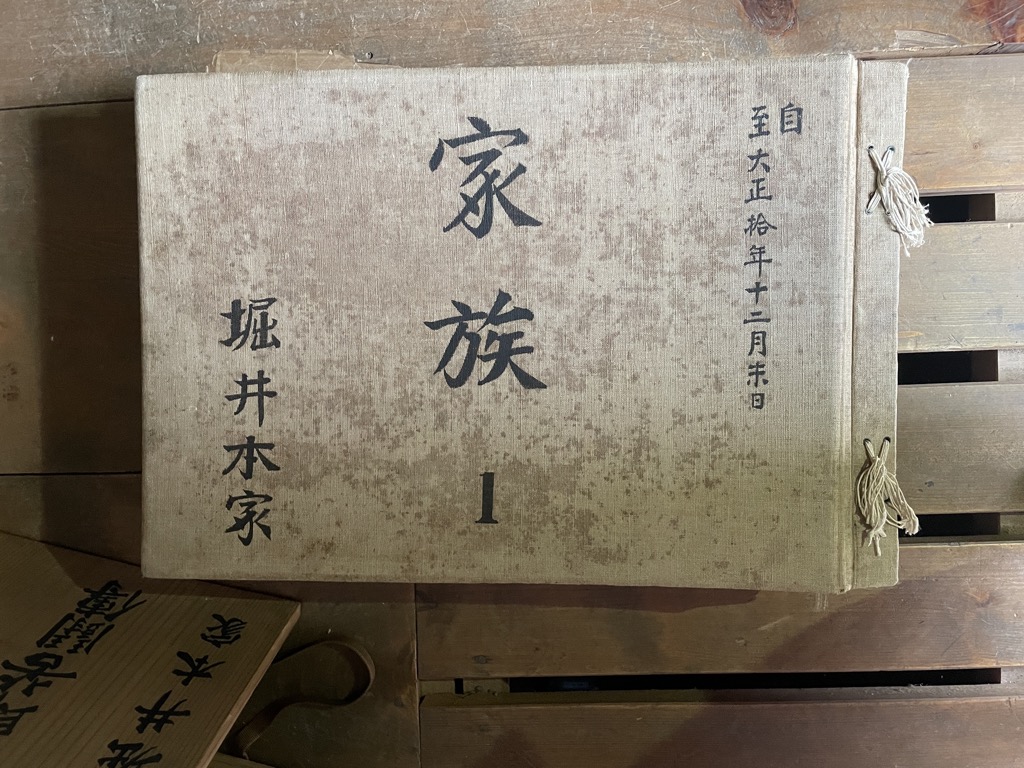 自
至大正拾年十二月末日
家族
1
堀井本家
堀井本家